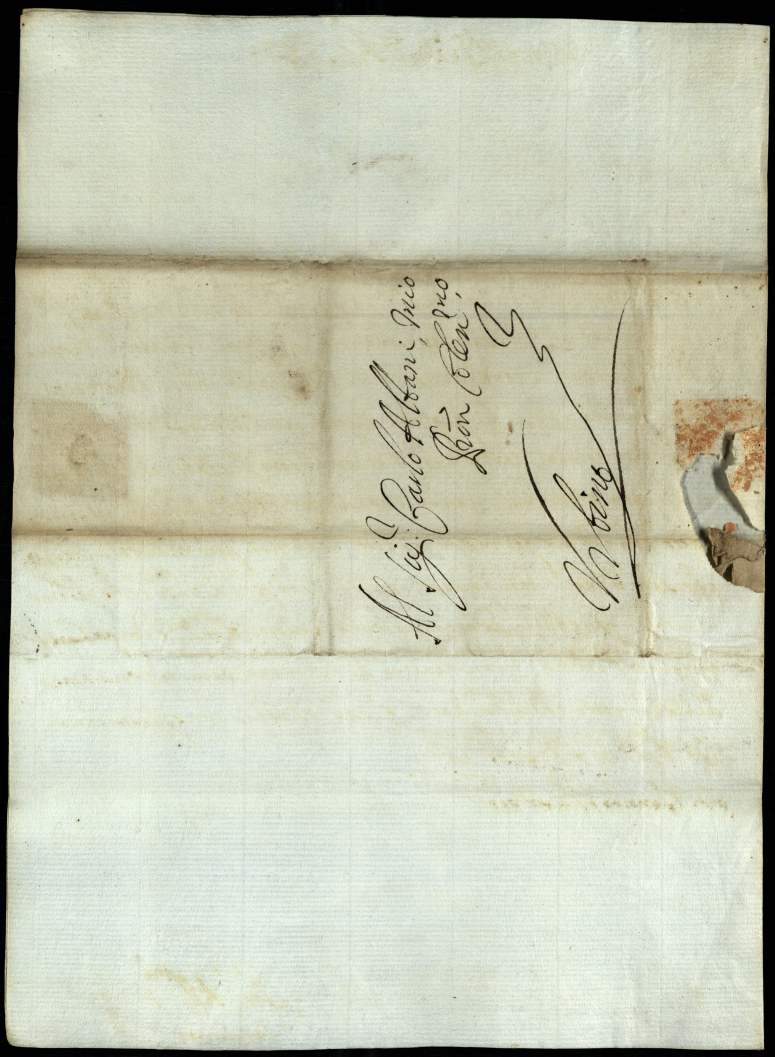 Al Sig.r Carlo Albani, mio
Pron Colen.mo
Urbino